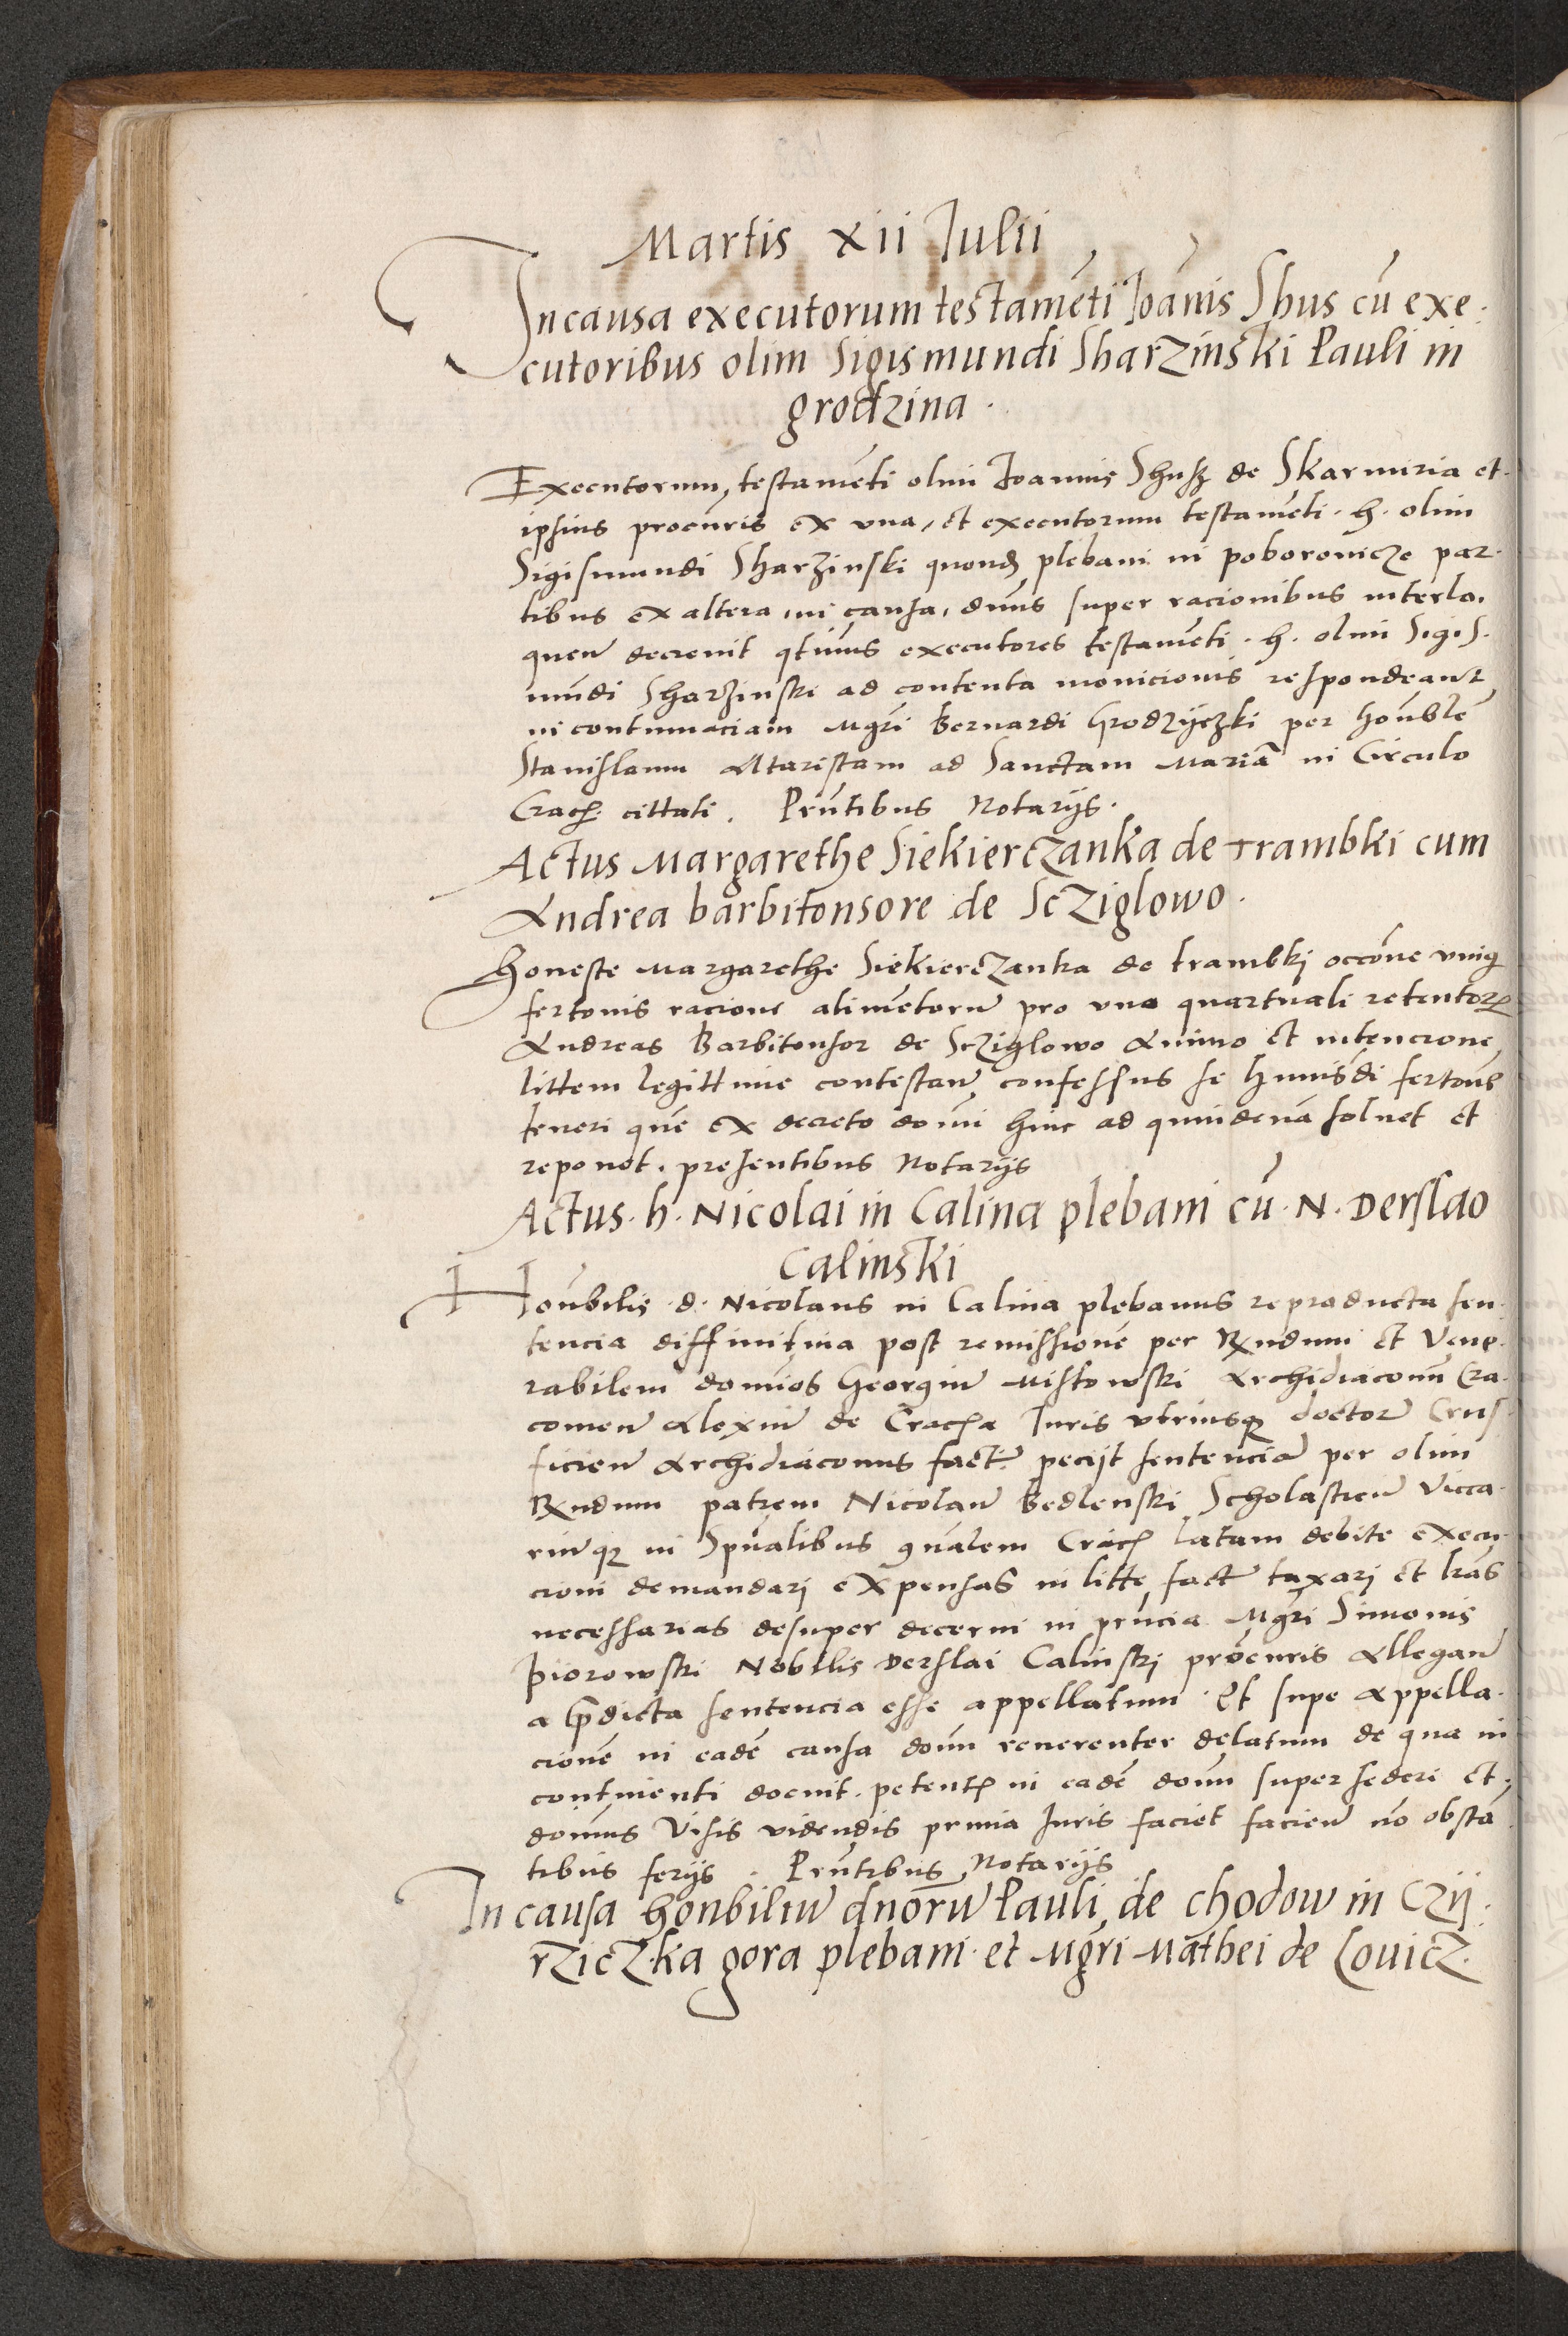 Martis xii Iulii
In causa executorum testamēti Ioānis Shus cū exe·
cutoribus olim Sigismundi Sharzinski Pauli in
grodzina ·
Executorum, testamēti olim Ioannis Shusz de Skarmiria et·
ipsius procuris ex vna, et executorum testamēti · h · olim
Sigismundi Sharzinski quond plebani in poborowicze par·
tibus ex altera, in causa, dnus super racionibus interlo·
quen decrevit qtinus executores testamēti · h · olim Sigis·
mundi Sharzinski ad contenta monicionis respondeant
in contumaciam Mgri Bernardi Grodzyczki per honble
Stanislaum Altaristam ad Sanctam Mariā in Circulo
Crac: cittati . Pruntibus Notarijs.
Actus Margarethe Siekierczanka de Trambki cum
Andrea barbitonsore de Scziglowo.
Honeste Margarethe Siekierczanka de trambkj occōne vnius
fertonis racione alimentorum pro vno quartuali retentor
Andreas Barbitonsor de Scziglowo Animo et intencione
littem legittime contestan confessus se huiusdi fertonē
teneri quē ex decreto domi hinc ad quindenā solvet et
reponet. presentibus Notarijs
Actus · h · Nicolai in Calina plebani cū · N · Derslao
Calinski
Honbilis · d · Nicolaus in Calina plebanus reproducta sen·
tencia diffinitiva post remissionē per Rndum et Vene·
rabilem dominos Georgiu Misskowski Archidiaconū Cra·
covien Alexiu de Cracha Iuris vtriusq doctor Crus·
ficien Archidiaconus fact: pecijt sentencia per olim
Rndum patrem Nicolau Bedlenski Scholasticu Vicca·
riuq in Spualibus gnalem Crac latam debite execu·
cioni demandarj expensas in litte fact taxari et lras
necessarias desuper decerni in pruncia Mgri Simonis
Piorowski Nobilis Derslai Calinskj procuris Allegan
a predicta sentencia esse appellatum · Et supe Appella·
cionē in eadē causa domi reverenter delatum de qua in
continenti docuit · petent in eadē domi supersederi et·
domus Visis videndis prmia Iuris faciet facien nō obstā
tibus ferijs . Pruntibus Notarijs
In causa honbiliu dnoru Pauli de chodow in Czij·
rziczka gora plebani · et Mgri Mathei de Lovicz.